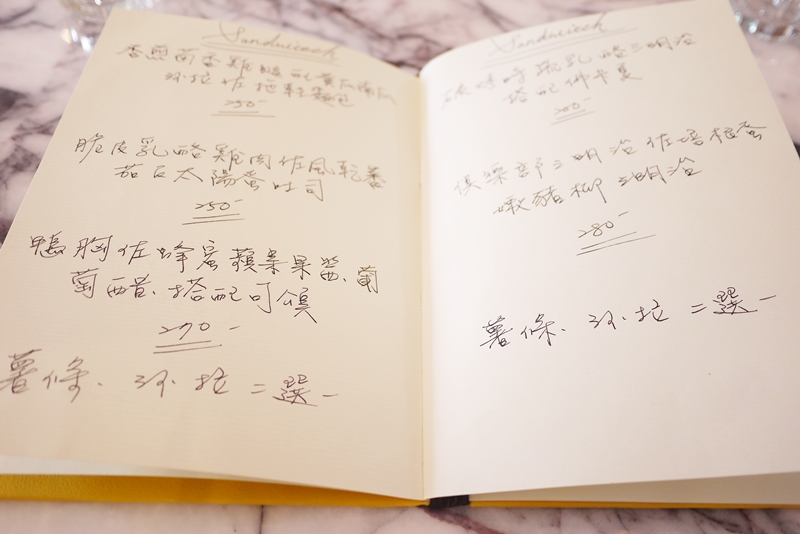 Sandwich
香煎茴香雞腿配黃瓜南瓜
沙拉佐拖鞋麵包
250-
脆皮乳酪雞肉佐風乾蕃
茄太陽蛋吐司
250-
鴨胸佐蜂蜜蘋果果醬、葡
萄醋、搭配可頌
270-
薯條、沙拉二選一
Sandwich
時蔬乳酪三明治
搭配佛卡夏
俱樂部三明治佐培根蛋
嫩豬柳三明治
280-
薯條、沙拉二選一